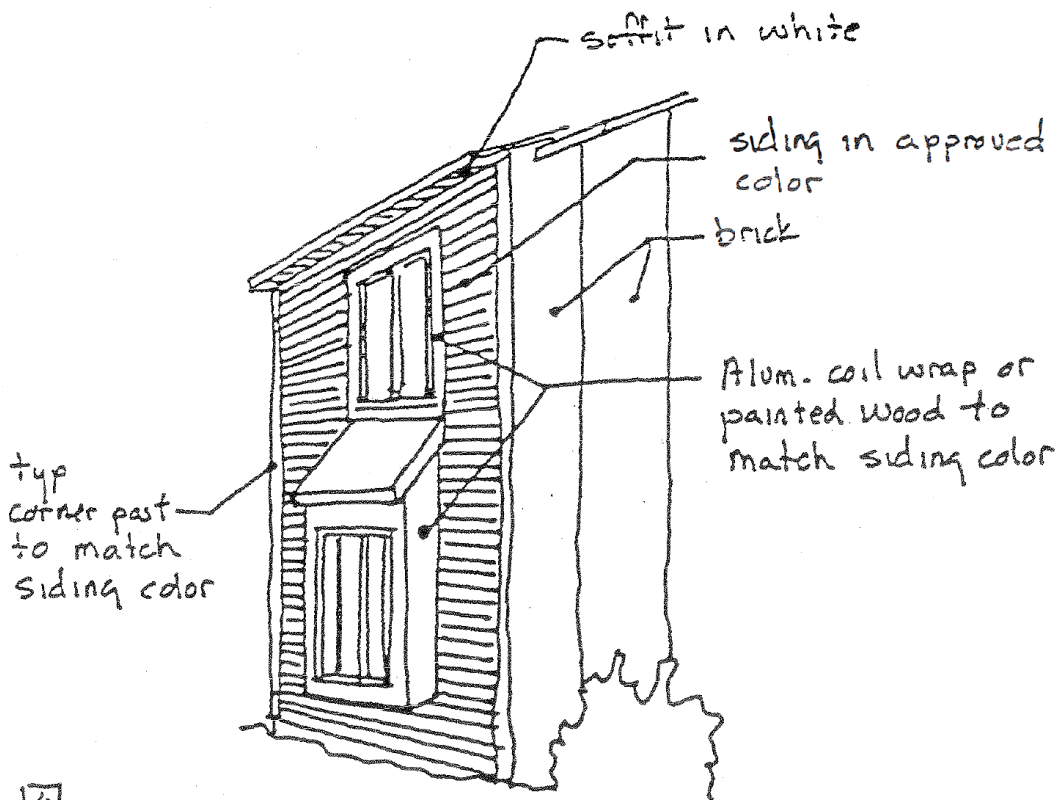 soffit in white
siding in approved
color
brick
Alum. coil wrap or
painted wood to
match siding color
typ
corner post
to match
siding color